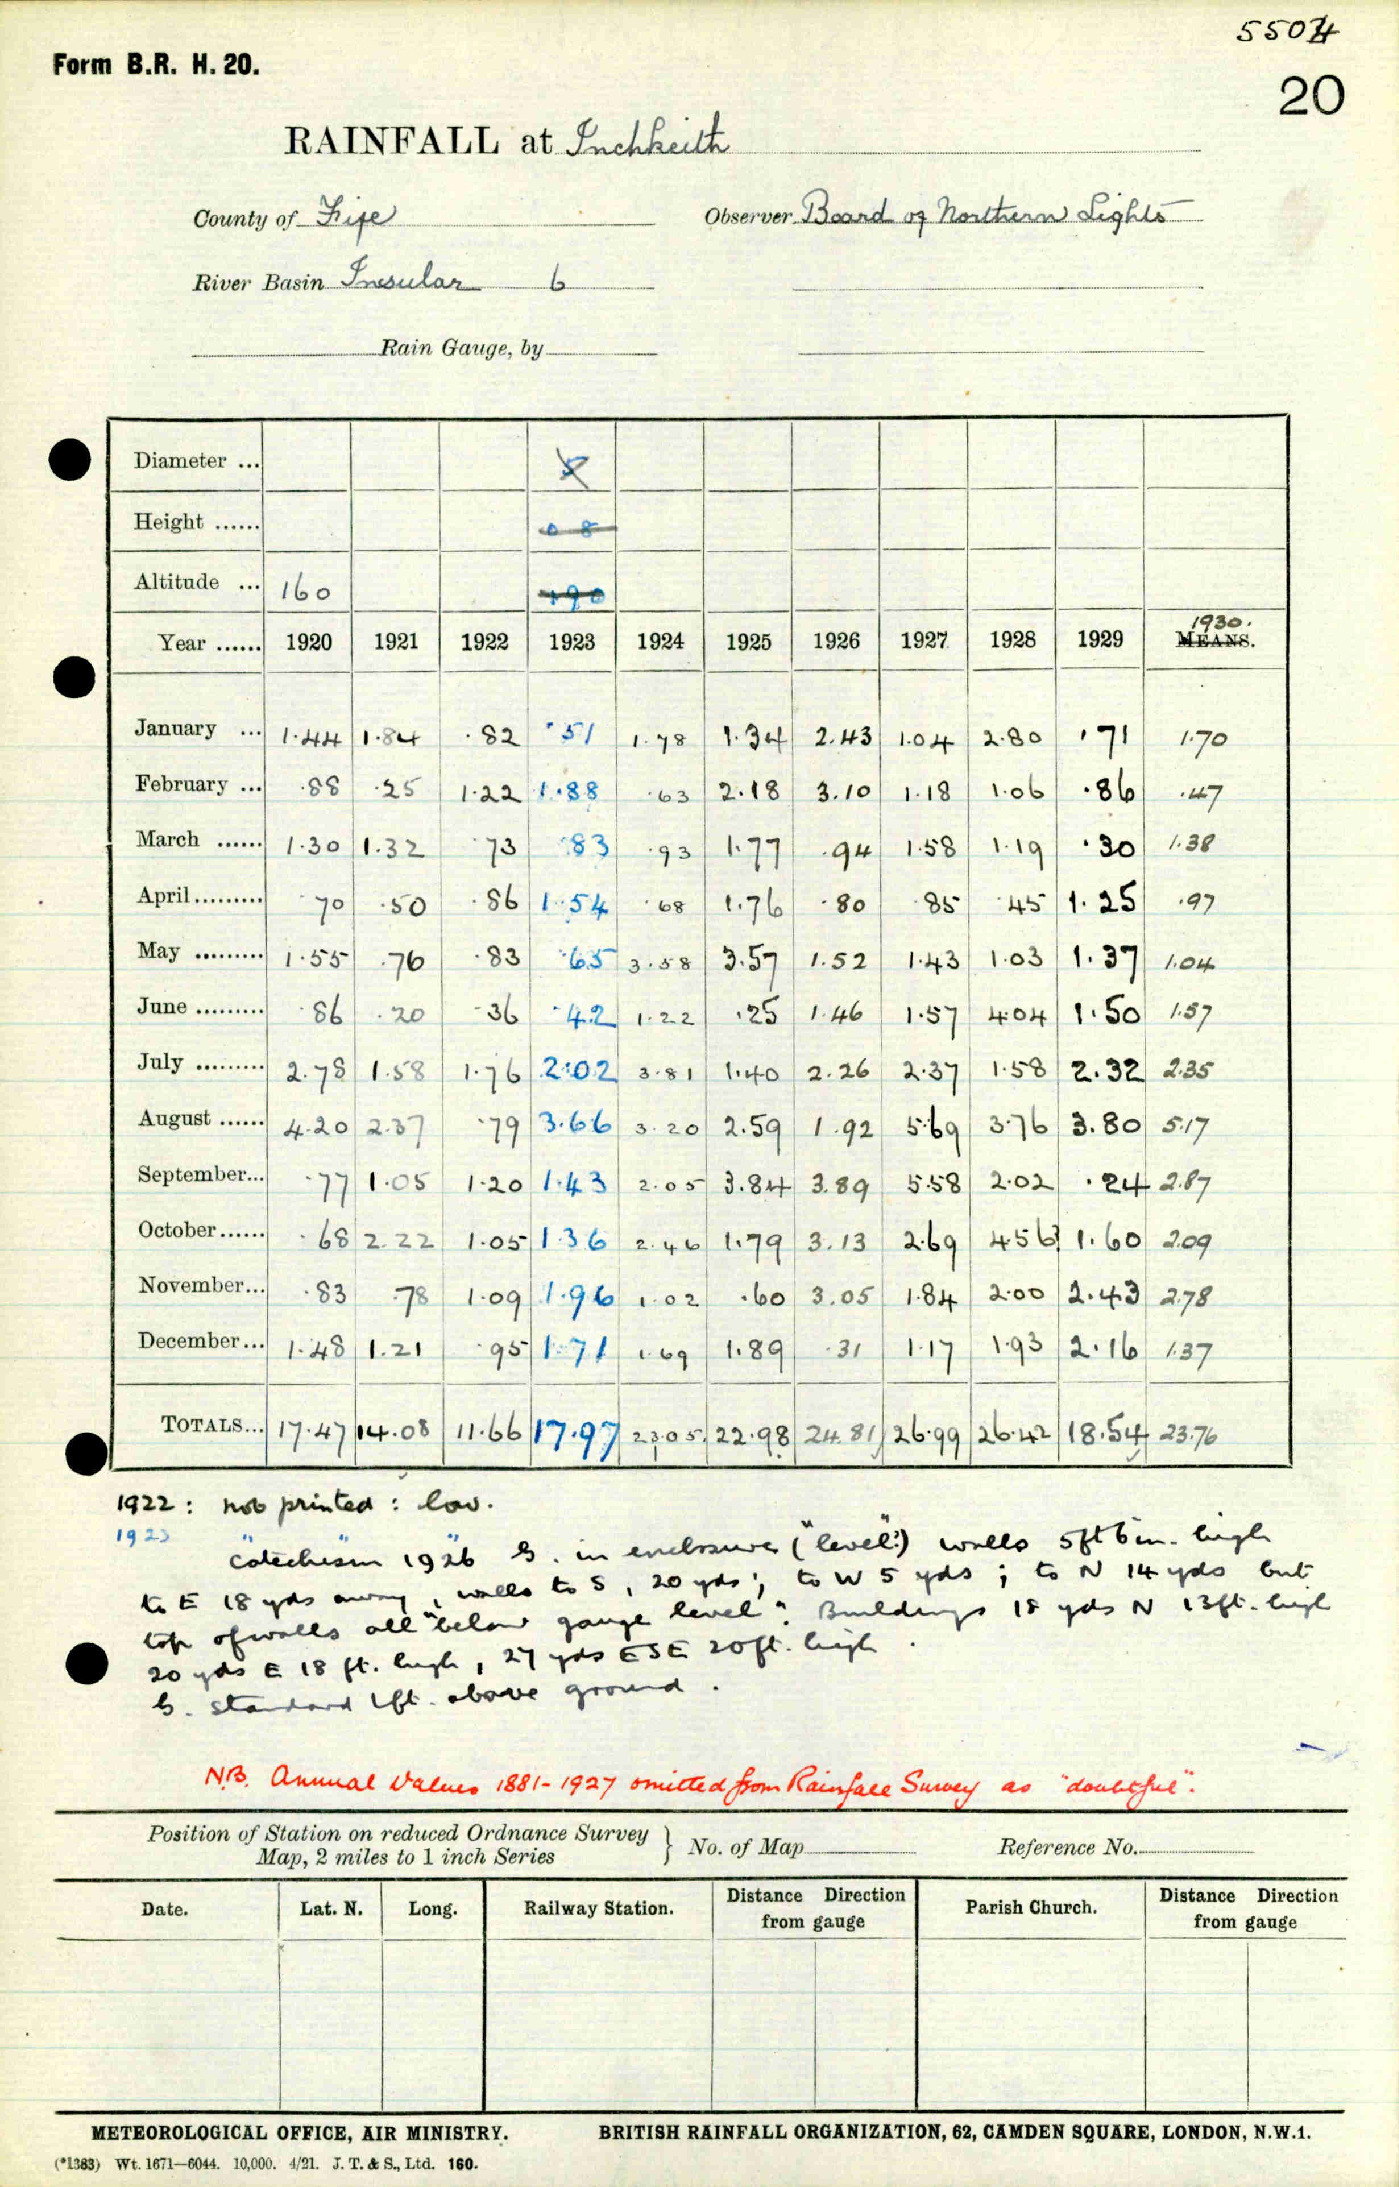 5504
Form B.R. H. 20.
20
RAINFALL at Inchkeith
County of Fife Observer Board of Northern Lights
River Basin Insular 6
Rain Gauge, by
Diameter ... 5
Height ...... 0 8
Altitude ... 160 190
1930.
Year ...... 1920 1921 1922 1923 1924 1925 1926 1927 1928 1929 MEANS.
January ... 1.44 1.84 .82 .51 1.78 1.34 2.43 1.04 2.80 .71 1.70
February ... .88 .25 1.22 1.88 .63 2.18 3.10 1.18 1.06 .86 .47
March ...... 1.30 1.32 .73 .83 .93 1.77 .94 1.58 1.19 .30 1.38
April ......... .70 .50 .86 1.54 .68 1.76 .80 .85 .45 1.25 .97
May ......... 1.55 .76 .83 .65 3.58 3.57 1.52 1.43 1.03 1.37 1.04
June ......... .86 .20 .36 .42 1.22 .25 1.46 1.57 4.04 1.50 1.57
July ......... 2.78 1.58 1.76 2.02 3.81 1.40 2.26 2.37 1.58 2.32 2.35
August ...... 4.20 2.37 .79 3.66 3.20 2.59 1.92 5.69 3.76 3.80 5.17
September... .77 1.05 1.20 1.43 2.05 3.84 3.89 5.58 2.02 .24 2.87
October...... .68 2.22 1.05 1.36 2.46 1.79 3.13 2.69 4.56 1.60 2.09
November... .83 .78 1.09 1.96 1.02 .60 3.05 1.84 2.00 2.43 2.78
December... 1.48 1.21 .95 1.71 1.69 1.89 .31 1.17 1.93 2.16 1.37
TOTALS... 17.47 14.08 11.66 17.97 23.05 22.98 24.81 26.99 26.42 18.54 23.76
1922 : not printed : low.
1923
"Catechism" 1926 G. in enclosure ("level") walls 5ft 6in. high
to E 18 yds away, walls to S, 20 yds; to W 5 yds; to N 14 yds but
top of walls all "below gauge level". Buildings 18 yds N 13ft. high
20 yds E 18 ft. high, 27 yds ESE 20ft. high.
G. standard 1ft. above ground.
N.B. Annual Values 1881-1927 omitted from Rainfall Survey as "doubtful".
Position of Station on reduced Ordnance Survey
Map, 2 miles to 1 inch Series } No. of Map Reference No.
Date. Lat. N. Long. Railway Station. Distance Direction from gauge Parish Church. Distance Direction from gauge
METEOROLOGICAL OFFICE, AIR MINISTRY. BRITISH RAINFALL ORGANIZATION, 62, CAMDEN SQUARE, LONDON, N.W.1.
(*1383) Wt. 1671—6044. 10,000. 4/21. J. T. & S., Ltd. 160.